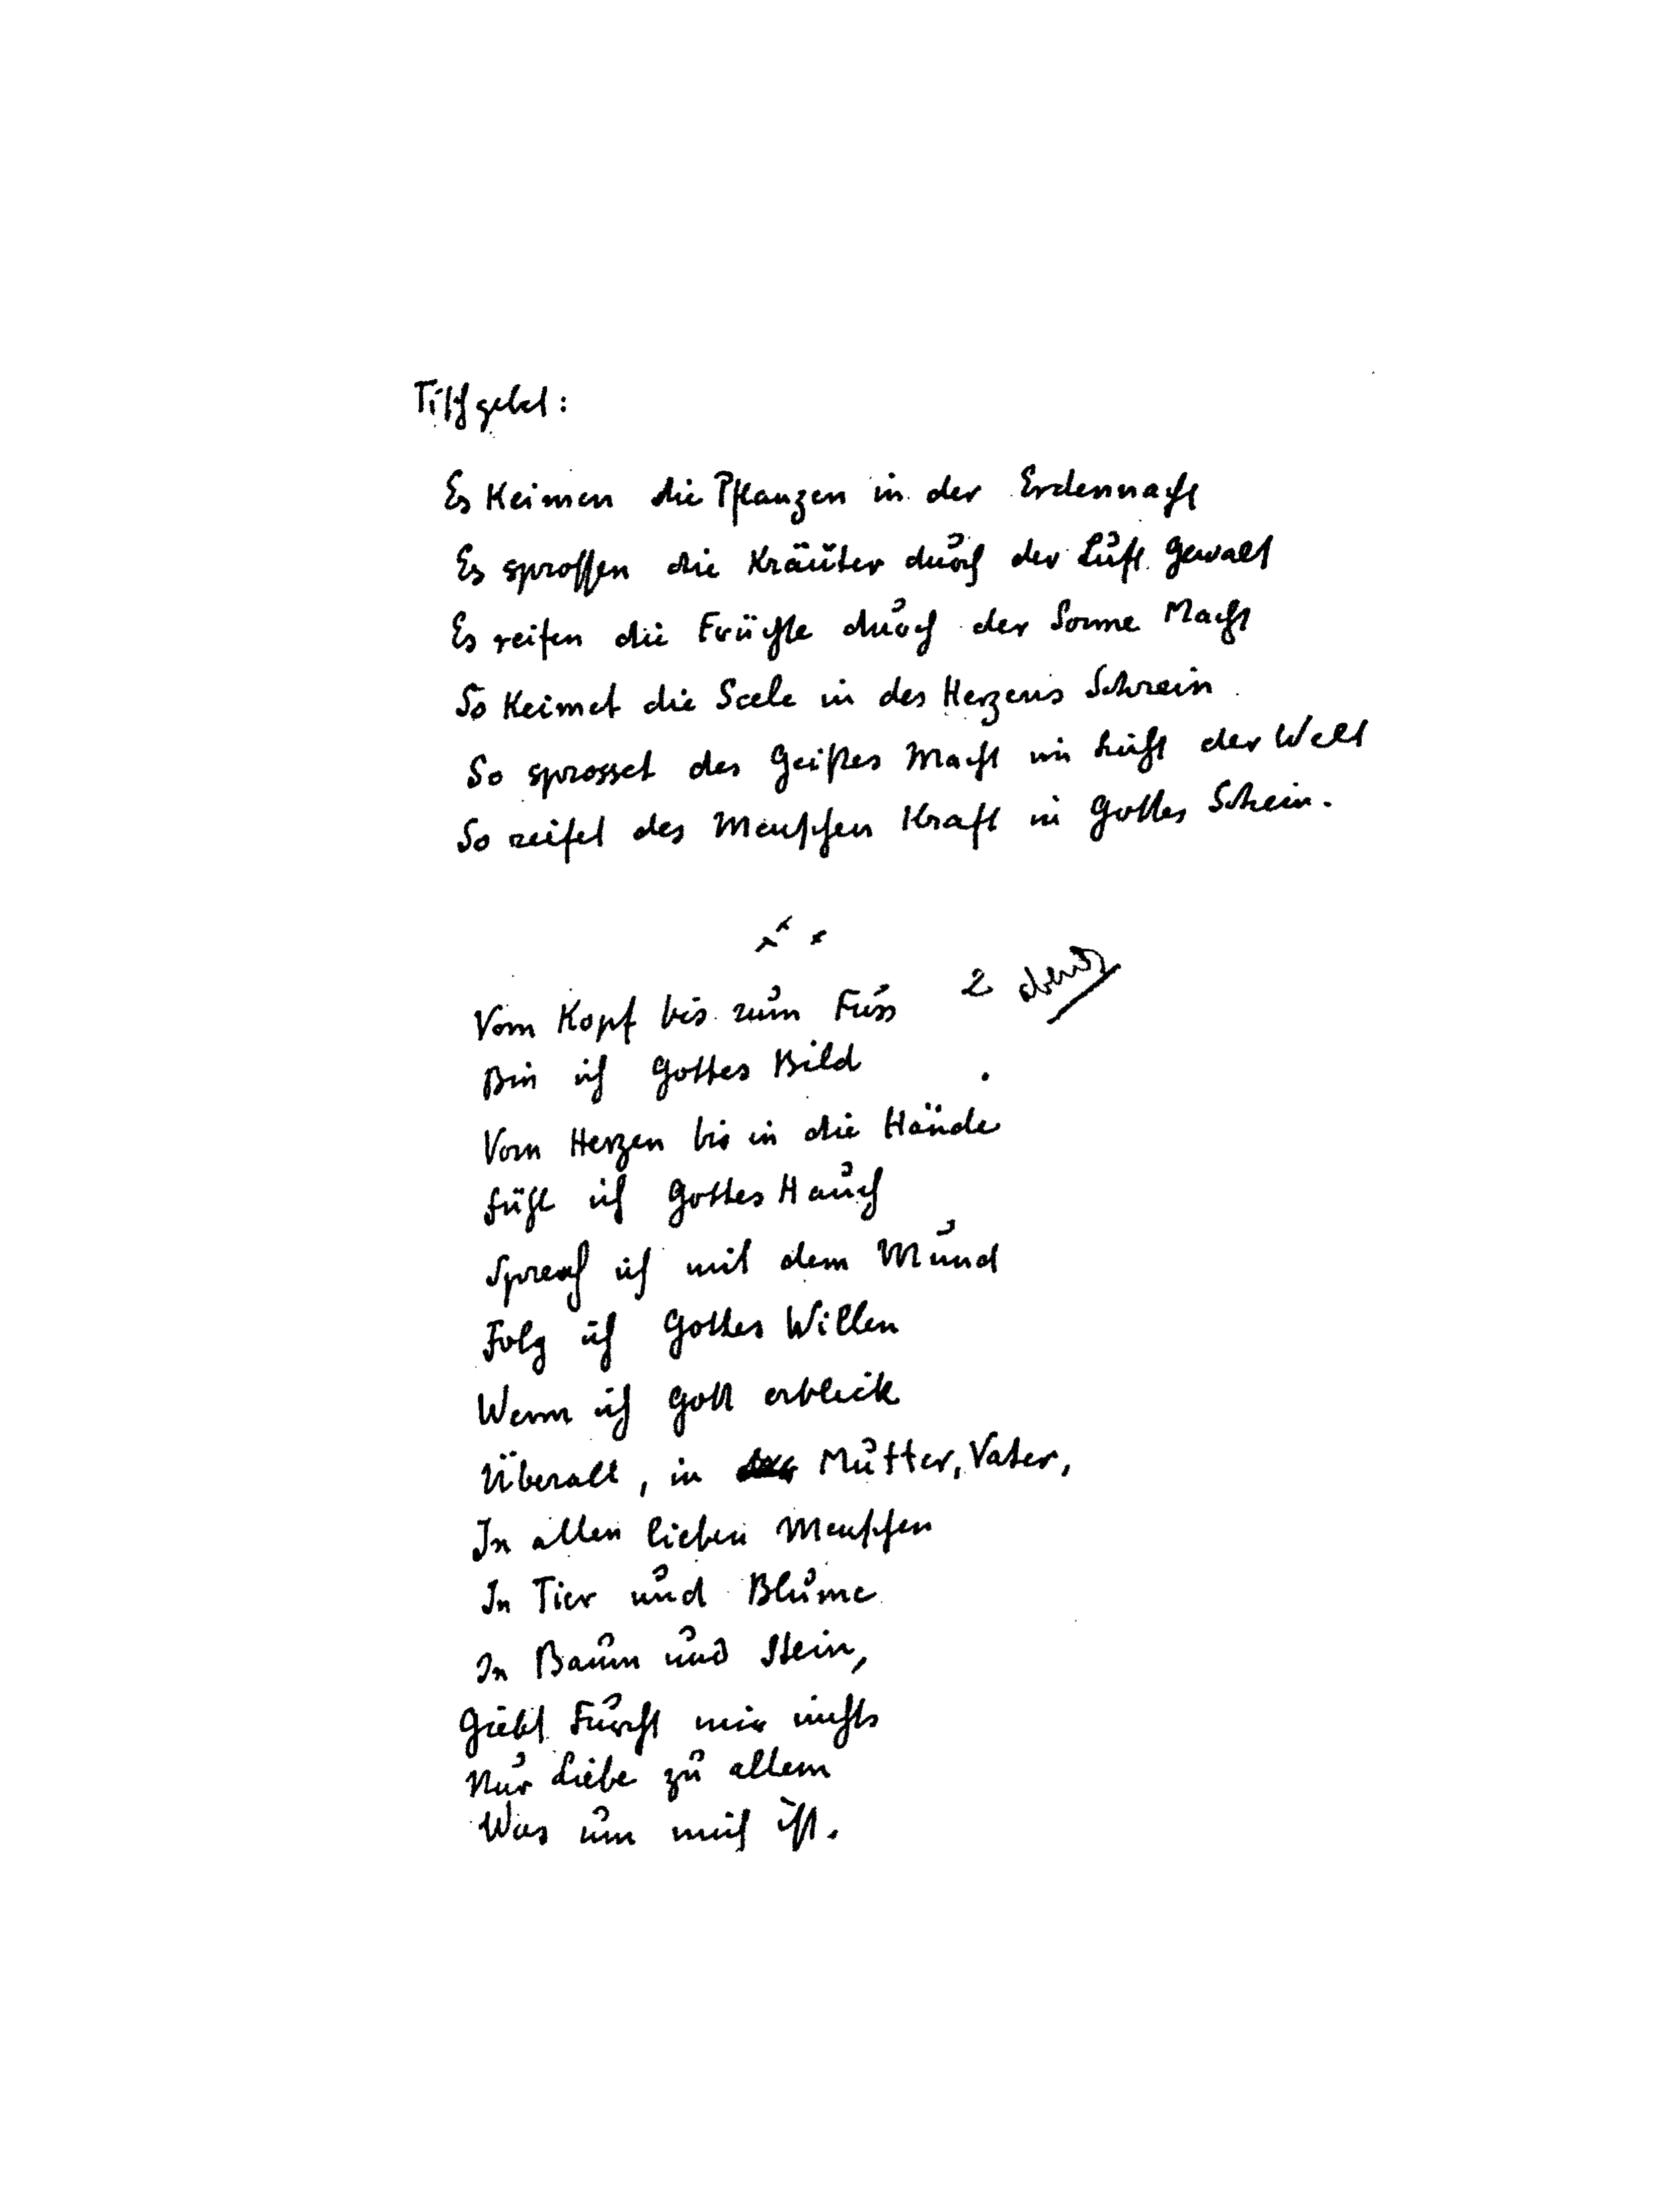 Tischgebet:
Es Keimen die Pflanzen in der Erdennacht
Es sprossen die Kräuter durch der Luft Gewalt
Es reifen die Früchte durch der Sonne Macht
So Keimet die Seele in des Herzens Schrein
So sprosset des Geistes Macht im Licht der Welt
So reifet des Menschen Kraft in Gottes Schein.
Vom Kopf bis zum Fuss
2 abends
Bin ich Gottes Bild
Vom Herzen bis in die Hände
Fühl ich Gottes Hauch
Sprech ich mit dem Mund
Folg ich Gottes Willen
Wenn ich Gott erblick
Überall, in Mutter, Vater,
In allen lieben Menschen
In Tier und Blume
In Baum und Stein,
Giebt Furcht mir nichts
Nur Liebe zu allem
Was um mich ist.